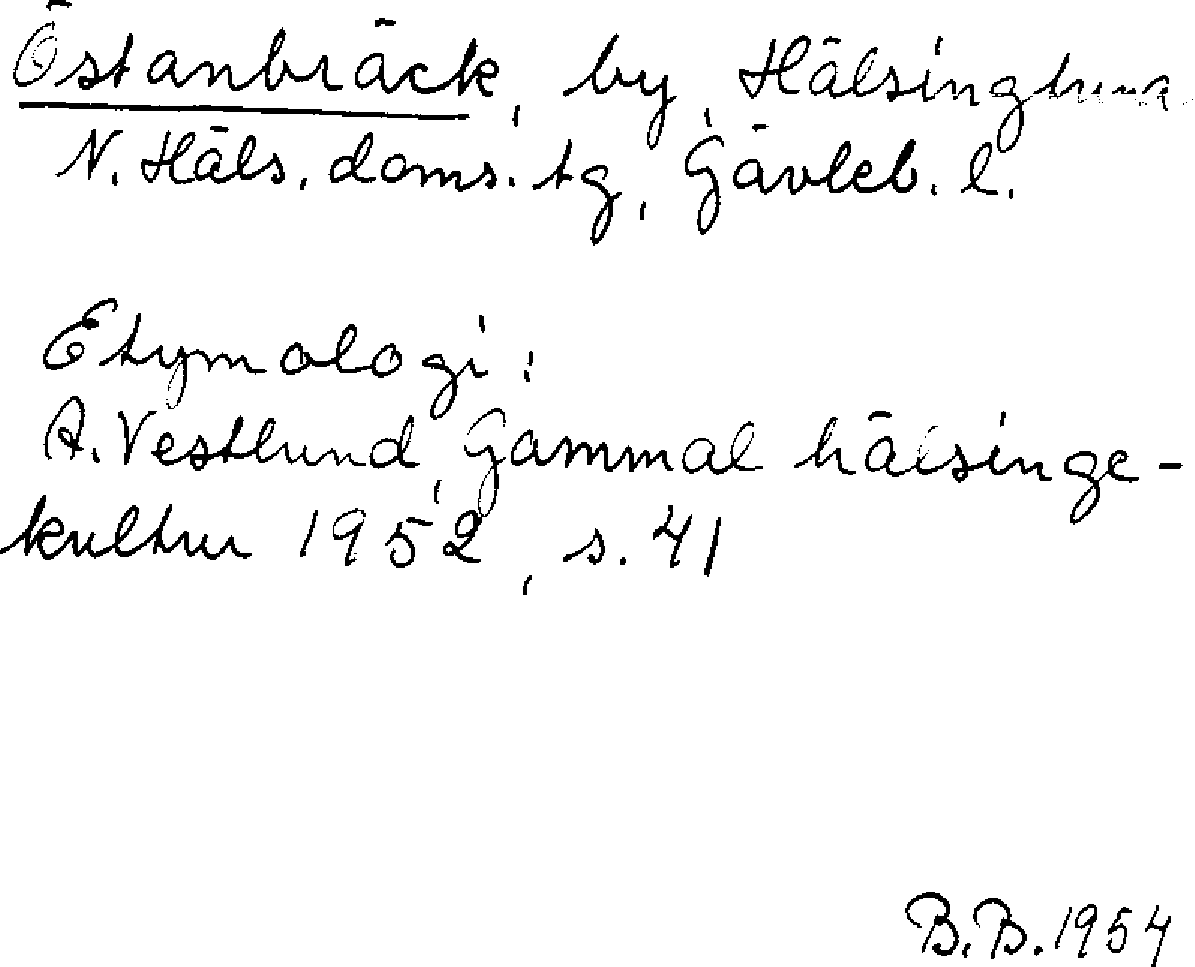 Östanbräck, by, Hälsingtuna
N. Häls. doms. tg, Gävleb. l.
Etymologi:
A. Vestlund, Gammal hälsinge-
kultur 1952, s. 41
B.B. 1954